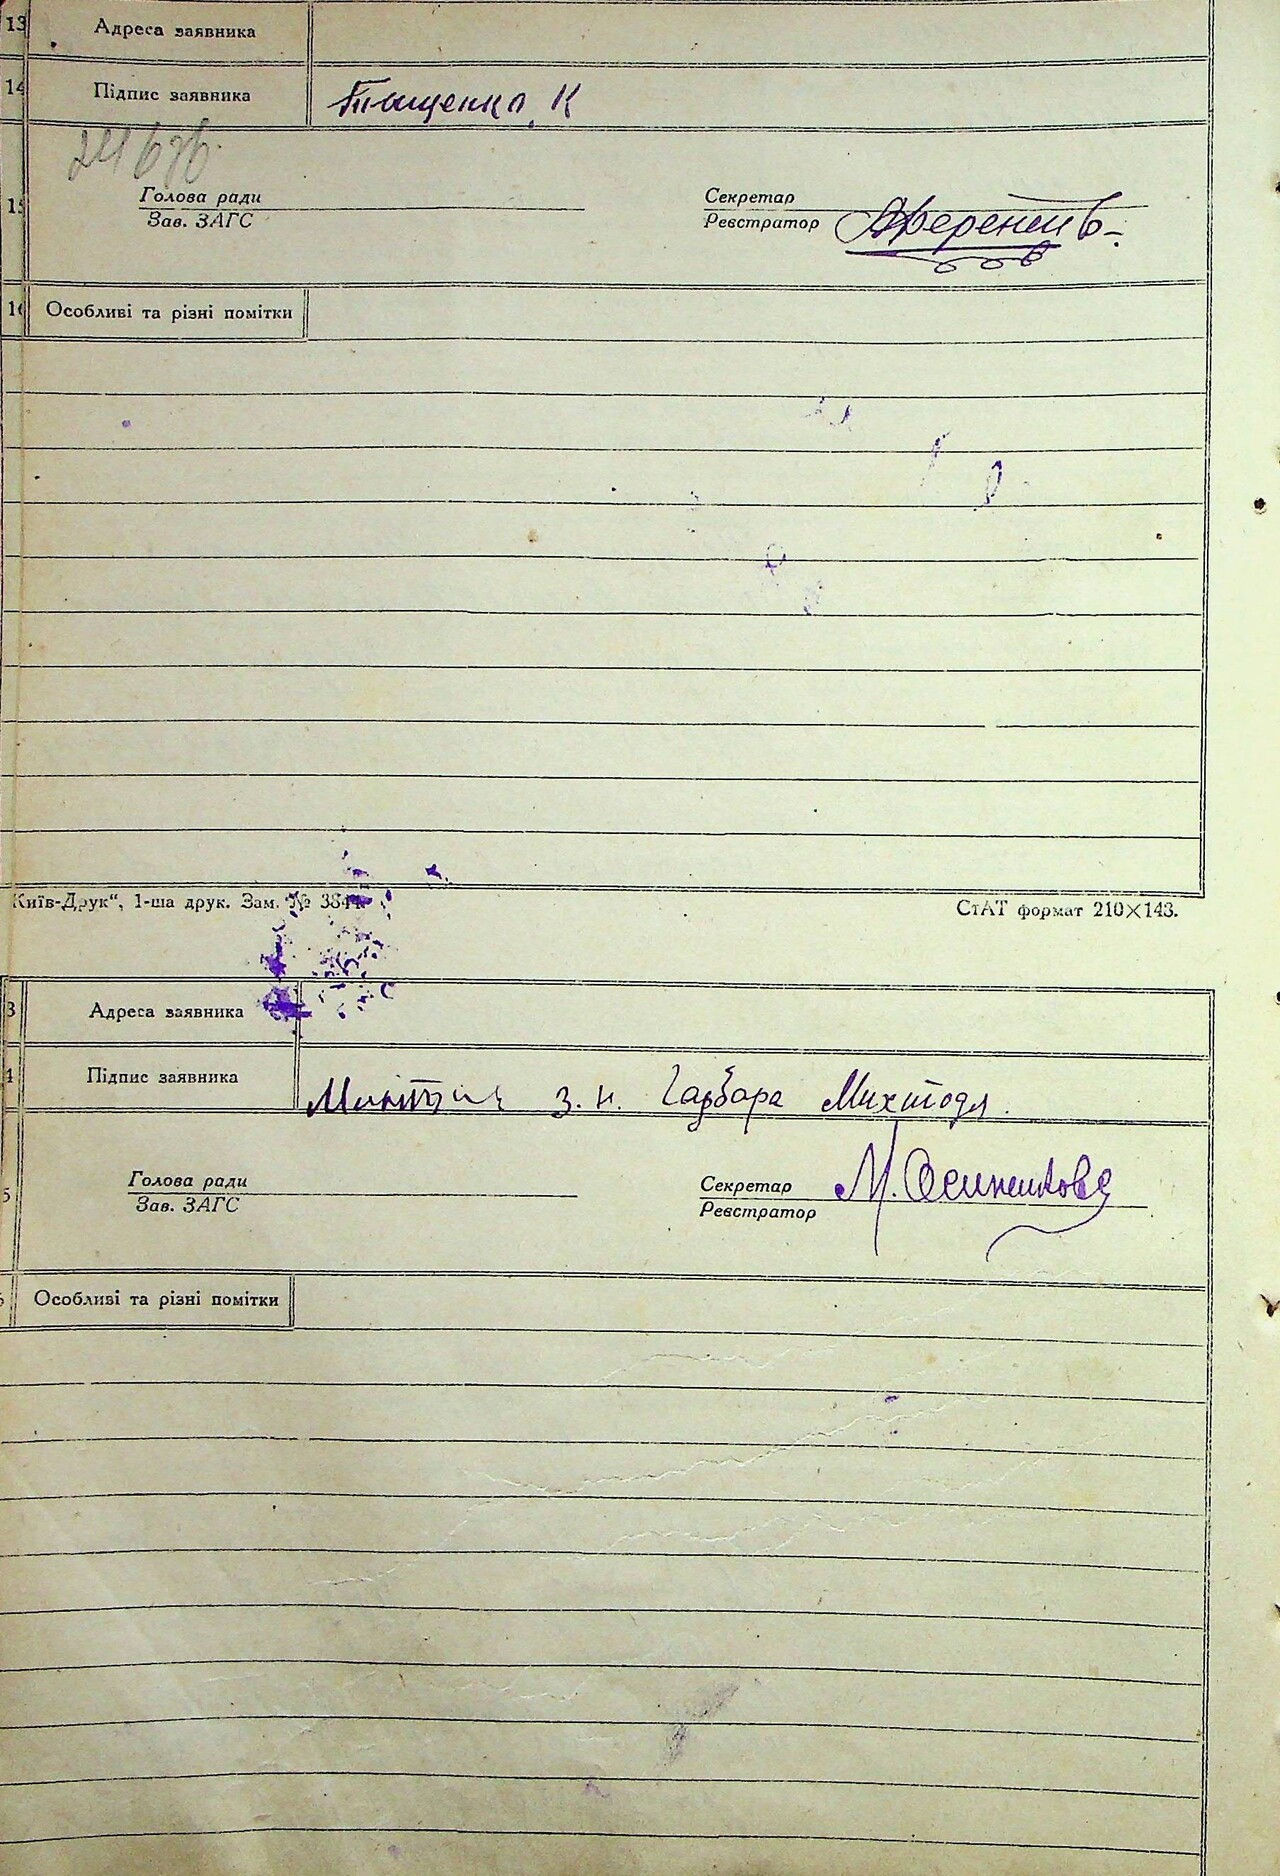 13 Адреса заявника
14 Підпис заявника Тищенко К
Голова ради
Зав. ЗАГС
Секретар
Реєстратор
Особливі та різні помітки
Київ-Друк“, 1-ша друк. Зам. № 3844
СтАТ формат 210×143.
3 Адреса заявника
4 Підпис заявника з. н.
Голова ради
Зав. ЗАГС
Секретар М.
Реєстратор
5
Особливі та різні помітки